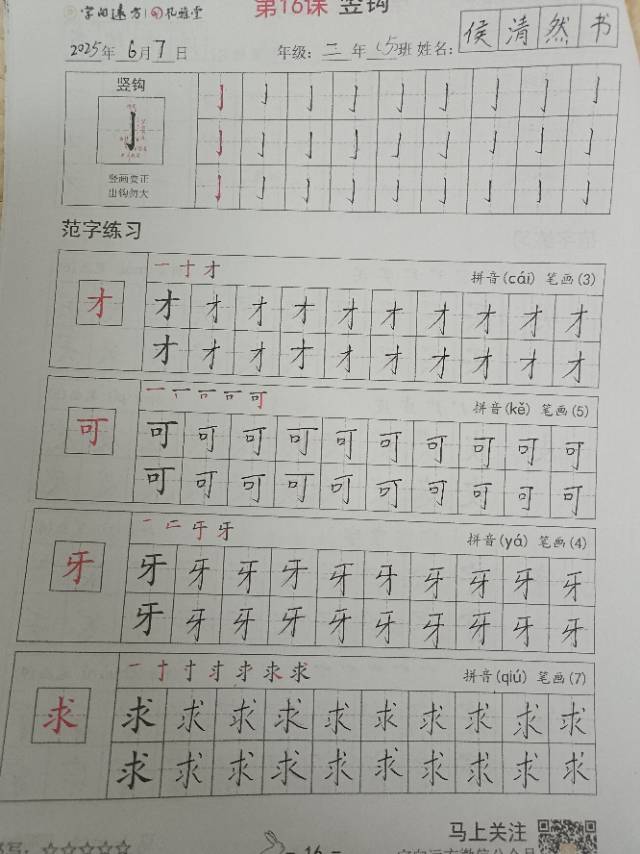 字由远方 礼雅堂
第16课 竖钩
2025年 6月7日 年级:二年(5)班 姓名: 侯清然书
竖钩
亅亅亅亅亅亅亅亅亅
亅亅亅亅亅亅亅亅亅
亅亅亅亅亅亅亅亅亅
竖画变正
出钩勿大
范字练习
一 十 才 拼音(cái) 笔画(3)
才
才才才才才才才才才才
才才才才才才才才才才
拼音(kě) 笔画(5)
可
可可可可可可可可可可
可可可可可可可可可可
牙 拼音(yá) 笔画(4)
牙
牙牙牙牙牙牙牙牙牙牙
牙牙牙牙牙牙牙牙牙牙
求 拼音(qiú) 笔画(7)
求
求求求求求求求求求求
求求求求求求求求求求
马上关注
☆☆☆☆☆ - 16 -